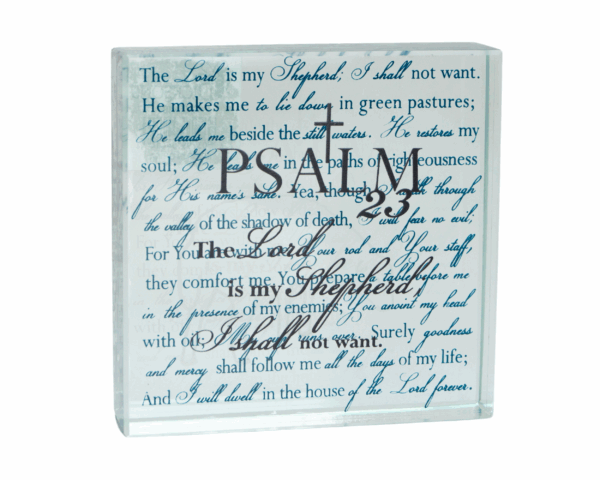 The Lord is my Shepherd; I shall not want.
He makes me to lie down in green pastures;
He leads me beside the still waters. He restores my
soul; He leads me in the paths of righteousness
for His name's sake. Yea, though I walk through
the valley of the shadow of death, I will fear no evil;
For You are with me; Your rod and Your staff,
they comfort me. You prepare a table before me
in the presence of my enemies; You anoint my head
with oil; runs over. Surely goodness
and mercy shall follow me all the days of my life;
And I will dwell in the house of the Lord forever.
PSALM
23
The Lord
is my Shepherd,
I shall not want.